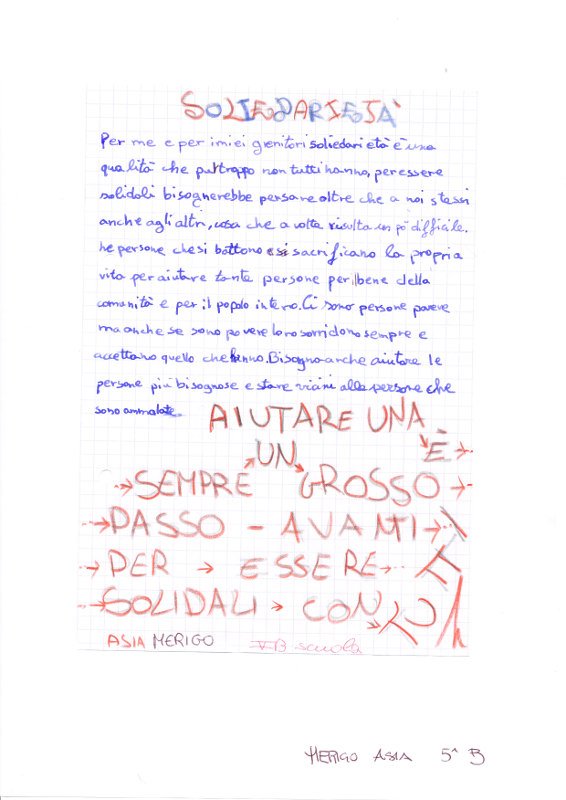 SOLIEDARIETÀ
Per me e per i miei genitori soliedarietà è una
qualità che purtroppo non tutti hanno, per essere
solidali bisognerebbe pensare oltre che a noi stessi
anche agli altri, cosa che a volte risulta un pò difficile.
Le persone che si battono e si sacrificano la propria
vita per aiutare tante persone per il bene della
comunità e per il popolo intero. Ci sono persone povere
ma anche se sono povere loro sorridono sempre e
accettano quello che hanno. Bisogna anche aiutare le
persone più bisognose e stare vicini alle persone che
sono ammalate.
AIUTARE UNA
È
SEMPRE UN GROSSO
PASSO - AVANTI
PER ESSERE
SOLIDALI CON
ASIA MERIGO VB scuola
MERIGO ASIA 5^ B